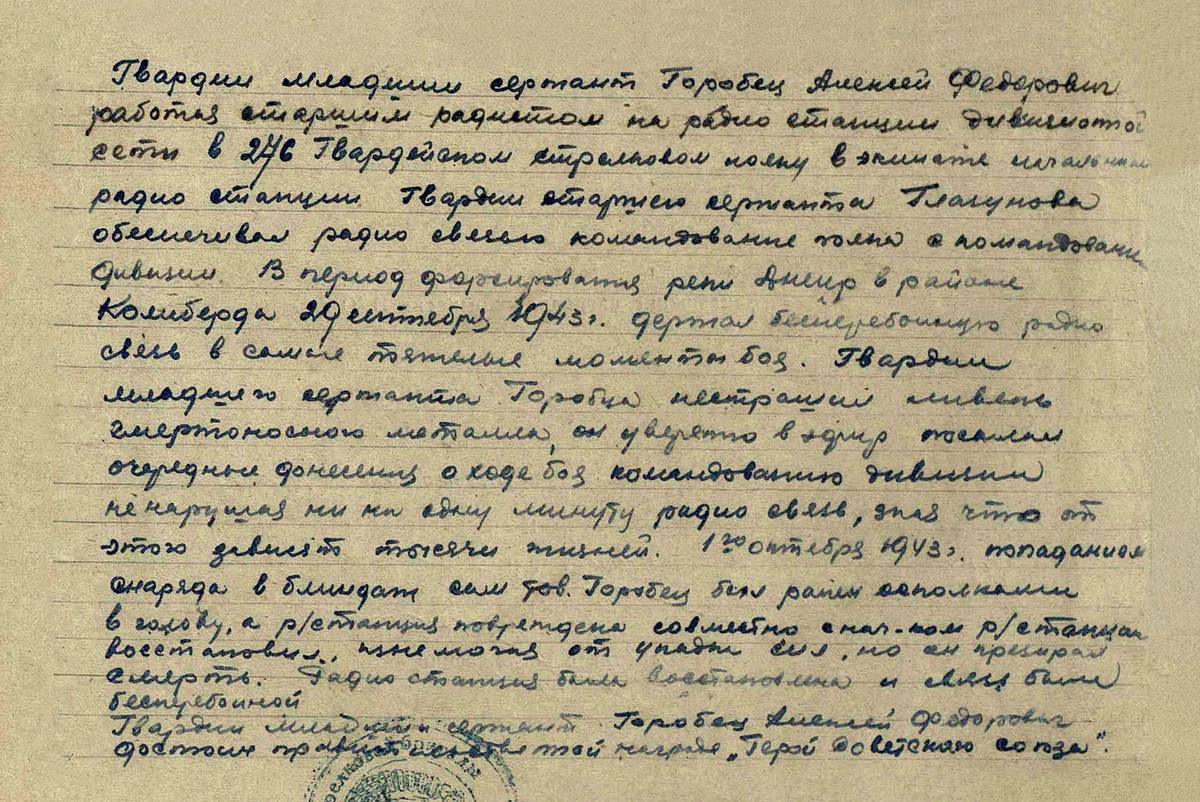 Гвардии младший сержант Горобец Алексей Федорович
работая старшим радистом на радио станции дивизионной
сети в 276 Гвардейском стрелковом полку в экипаже начальника
радио станции Гвардии старшего сержанта Глазунова
обеспечивал радио связью командование полка с командованием
дивизии. В период форсирования реки Днепр в районе
Келеберда 29 сентября 1943 г. держал бесперебойную радио
связь в самые тяжелые моменты боя. Гвардии
младшего сержанта Горобца нестрашил ливень
смертоносного металла, он уверенно в эфир посылал
очередные донесения о ходе боя командованию дивизии
ненарушая ни на одну минуту радио связь, зная что от
этого зависят тысячи жизней. 1го октября 1943 г. попаданием
снаряда в блиндаж сам тов. Горобец был ранен осколками
в голову, а р/станция повреждена совместно с нач-ком р/станции
восстановил, изнемогая от упадка сил, но он презирал
смерть. Радио станция была восстановлена и связь была
бесперебойной
Гвардии младший сержант Горобец Алексей Федорович
достоин правительственной награде „Герой Советского союза".